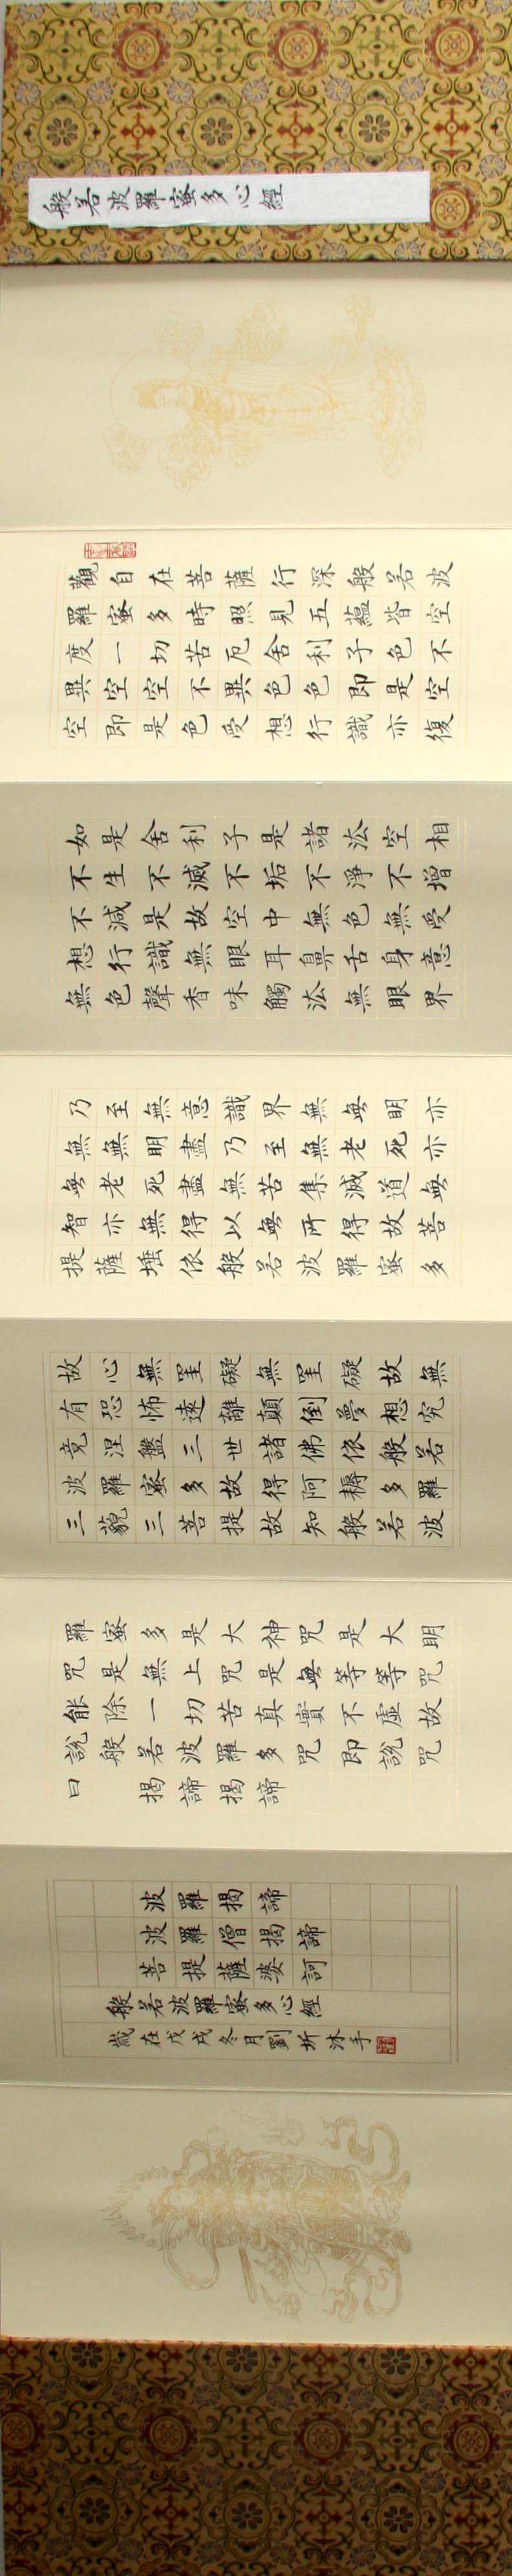 般若波羅蜜多心經
觀自在菩薩行深般若波
羅蜜多時照見五蘊皆空
度一切苦厄舍利子色不
異空空不異色色即是空
空即是色受想行識亦復
如是舍利子是諸法空相
不生不滅不垢不淨不增
不減是故空中無色無受
想行識無眼耳鼻舌身意
無色聲香味觸法無眼界
乃至無意識界無無明亦
無無明盡乃至無老死亦
無老死盡無苦集滅道無
智亦無得以無所得故菩
提薩埵依般若波羅蜜多
故心無罣礙無罣礙故無
有恐怖遠離顛倒夢想究
竟涅盤三世諸佛依般若
波羅蜜多故得阿耨多羅
三藐三菩提故知般若波
羅蜜多是大神咒是大明
咒是無上咒是無等等咒
能除一切苦真實不虛故
說般若波羅多咒即說咒
曰 揭諦揭諦
波羅揭諦
波羅僧揭諦
菩提薩婆訶
般若波羅蜜多心經
歲在戊戌冬月劉圻沐手